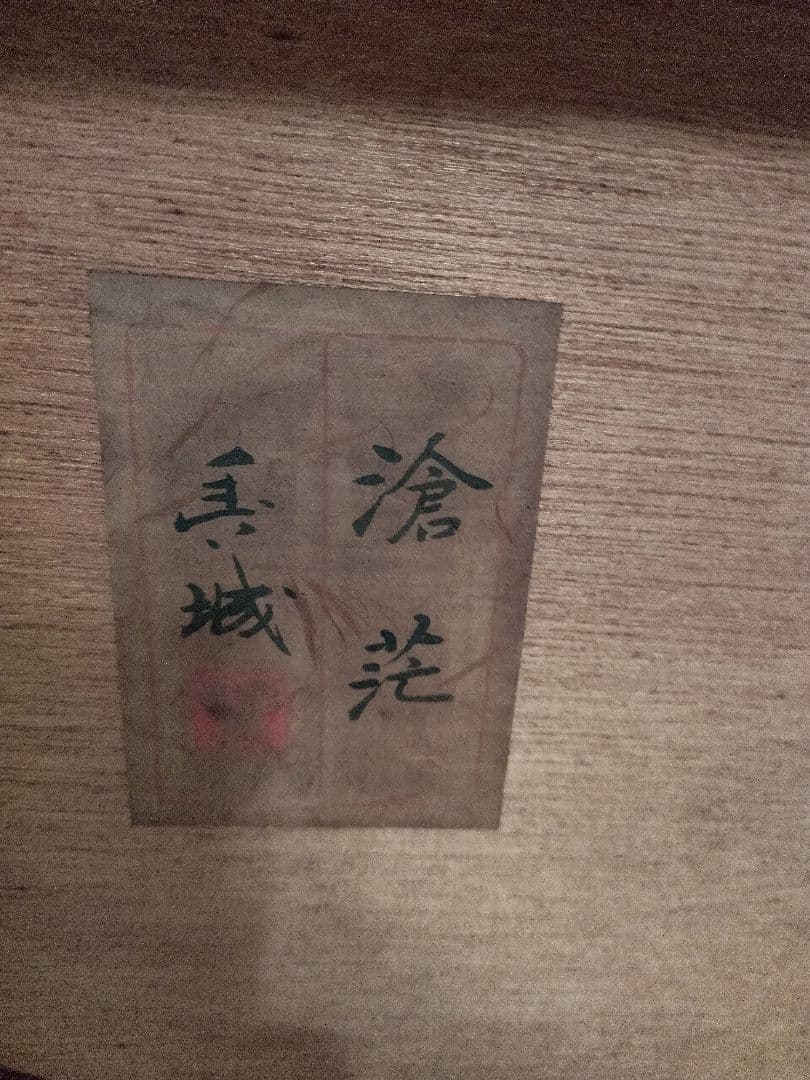 滄茫
真城